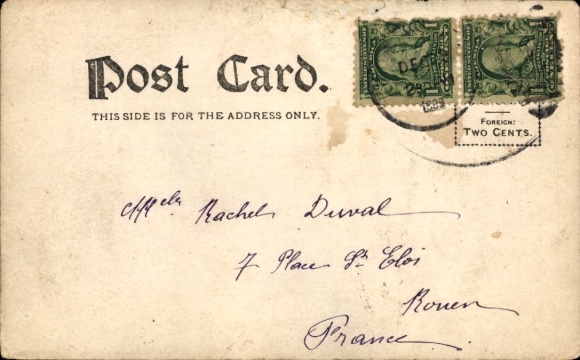 Post Card.
THIS SIDE IS FOR THE ADDRESS ONLY.
DE
FOREIGN:
TWO CENTS.
Mlle Rachel Duval
7 Place St Eloi
Rouen
France